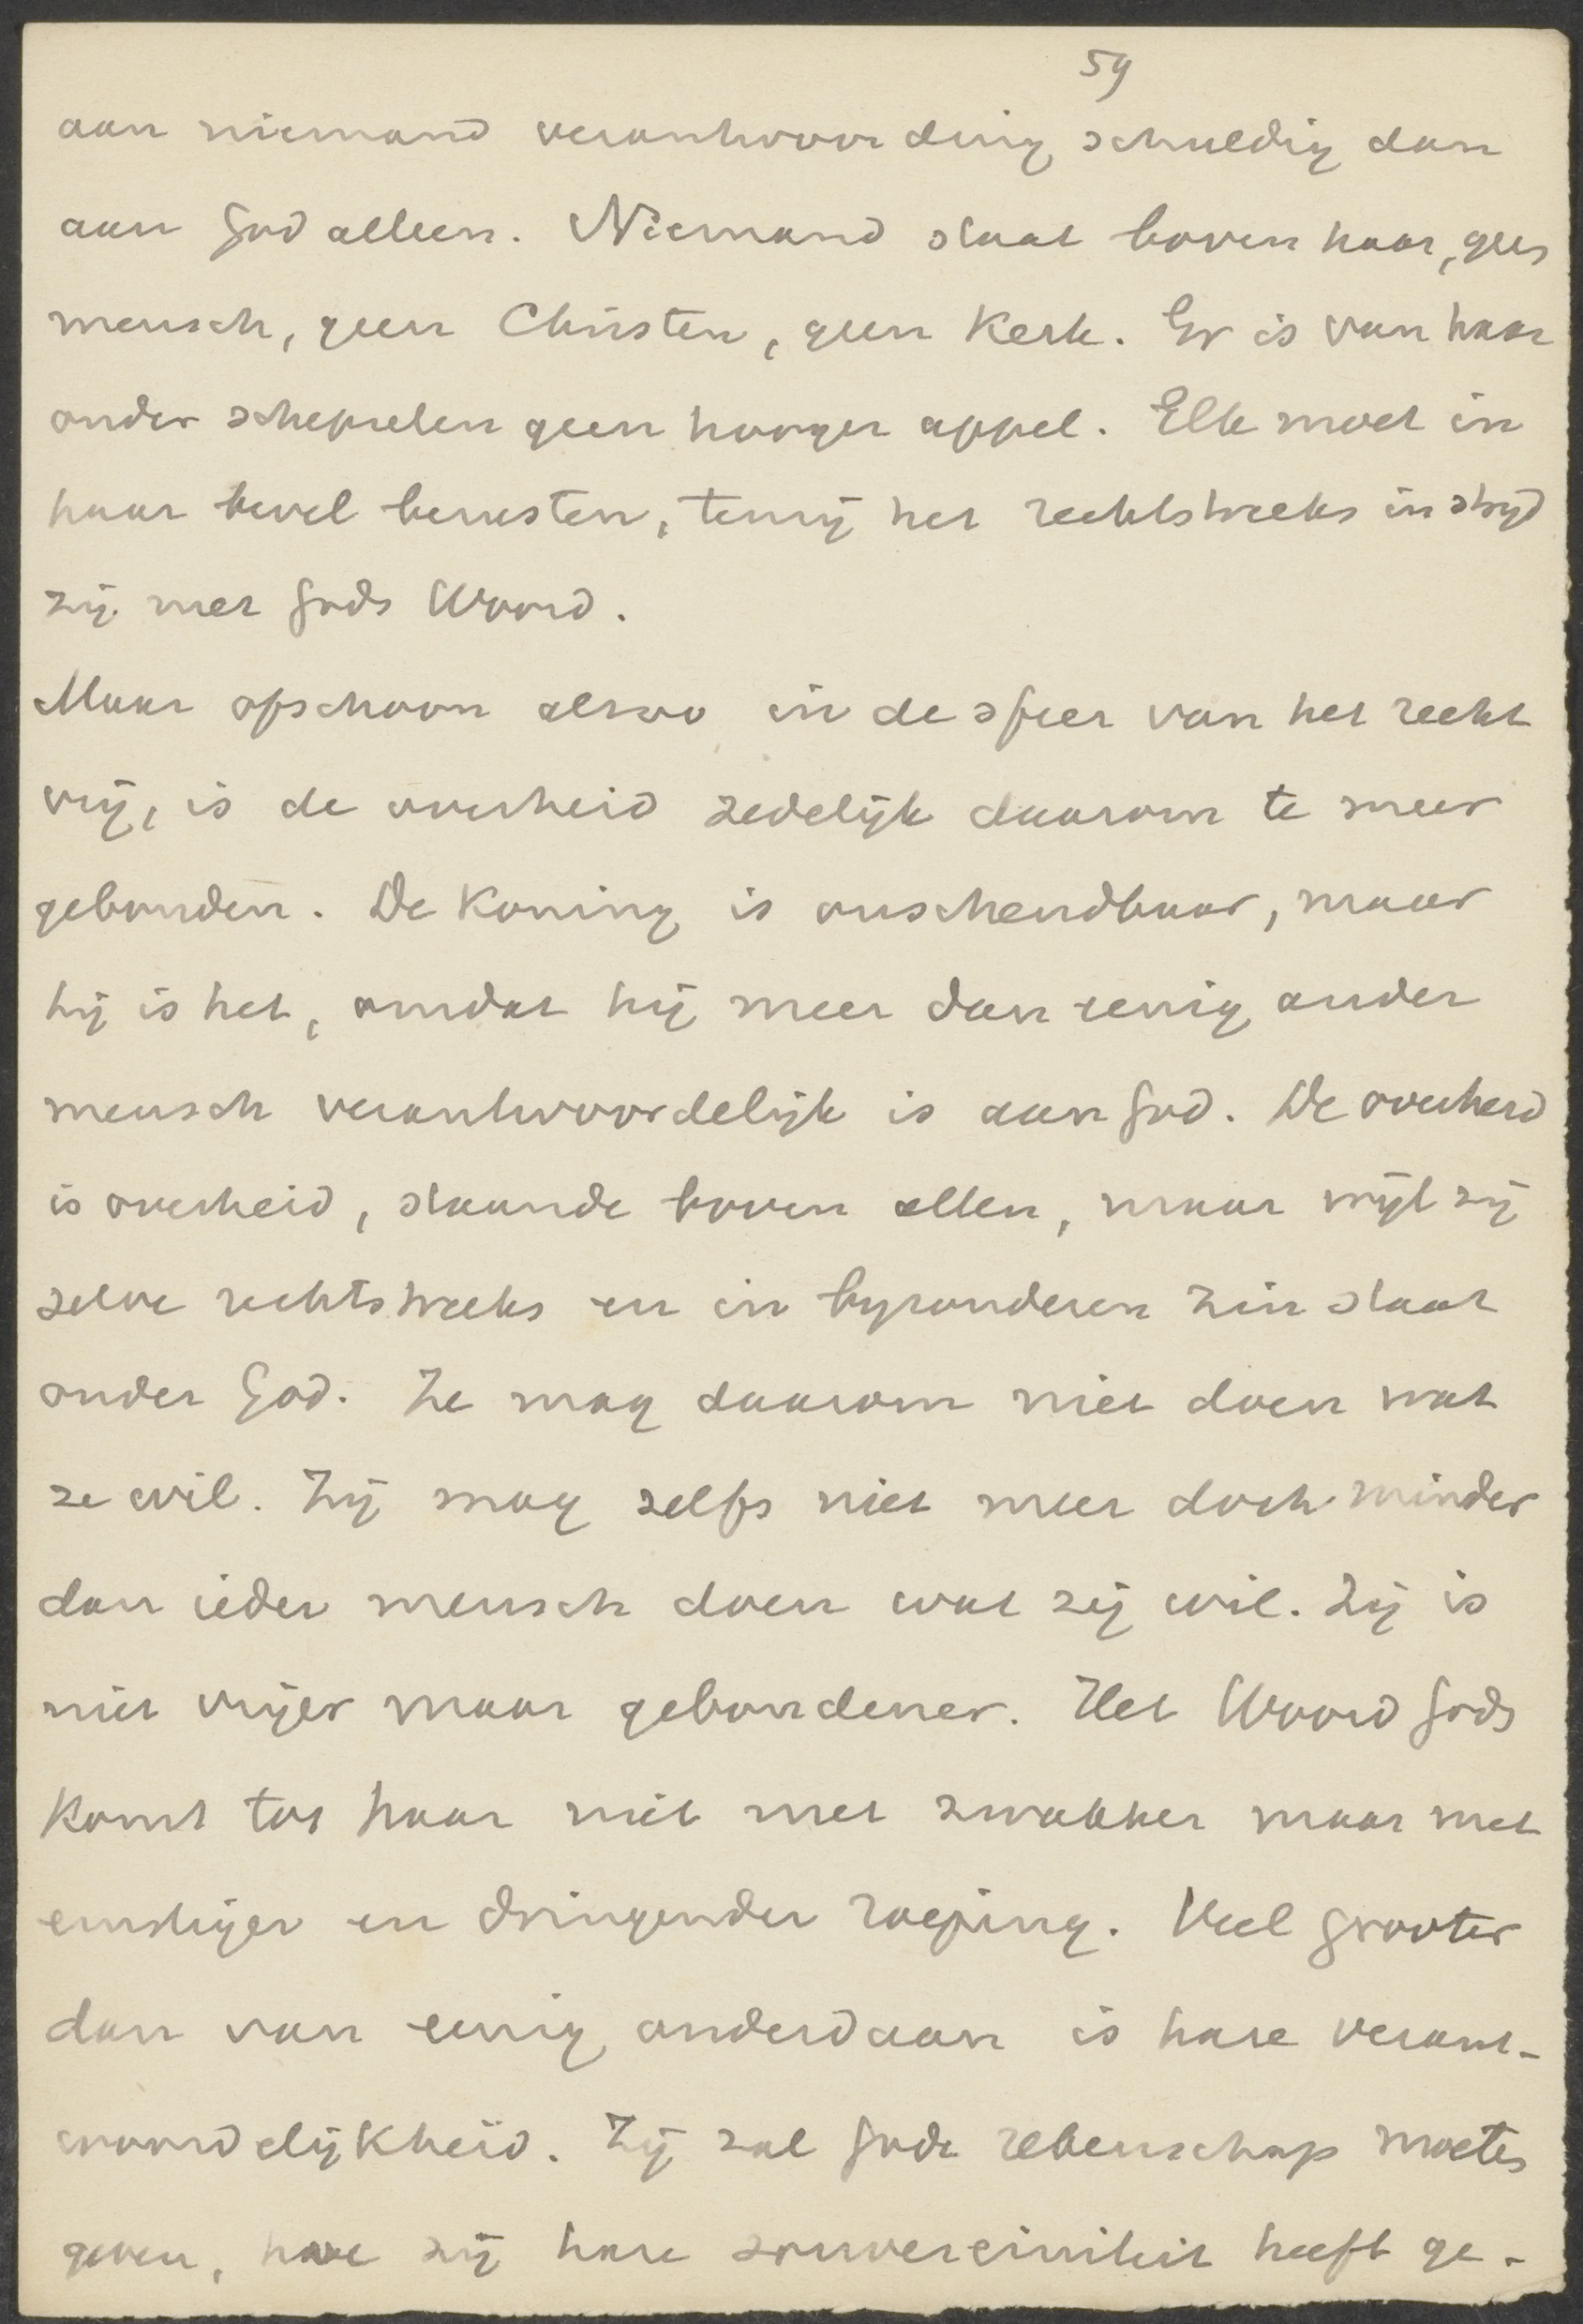 59
aan niemand verantwoording schuldig dan
aan God alleen. Niemand staat boven haar, geen
mensch, geen Christen, geen Kerk. Er is van haar
onder schepselen geen hooger appel. Elk moet in
haar bevel berusten, tenzij het rechtstreeks in strijd
zij met Gods Woord.
Maar ofschoon alzoo in de sfeer van het recht
vrij, is de overheid zedelijk daarom te meer
gebonden. De Koning is onschendbaar, maar
hij is het, omdat hij meer dan eenig ander
mensch verantwoordelijk is aan God. De overheid
is overheid, staande boven allen, maar wijl zij
zelve rechtstreeks en in byzonderen zin staat
onder God. Ze mag daarom niet doen wat
ze wil. Zij mag zelfs niet meer doch minder
dan ieder mensch doen wat zij wil. Zij is
niet vrijer maar gebondener. Het Woord Gods
komt tot haar niet met zwakker maar met
ernstiger en dringender roeping. Veel grooter
dan van eenig onderdaan is hare verant-
woordelijkheid. Zij zal Gode rekenschap moeten
geven, hoe zij hare souvereiniteit heeft ge-